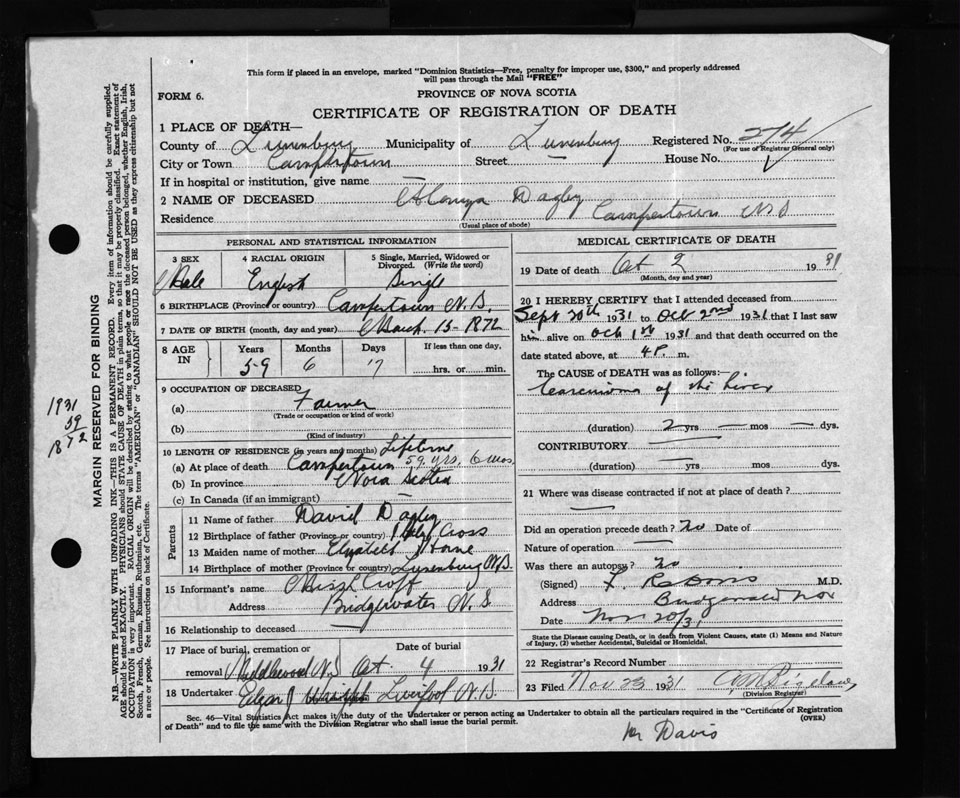 This form if placed in an envelope, marked "Dominion Statistics—Free, penalty for improper use, $300," and properly addressed
will pass through the Mail "FREE"
FORM 6.
PROVINCE OF NOVA SCOTIA
CERTIFICATE OF REGISTRATION OF DEATH
1 PLACE OF DEATH—
County of Lunenburg Municipality of Lunenburg Registered No. 274
(For use of Registrar General only)
City or Town Camperstown Street House No.
If in hospital or institution, give name —
2 NAME OF DECEASED Dagley
Residence Campertown N S
(Usual place of abode)
PERSONAL AND STATISTICAL INFORMATION
3 SEX 4 RACIAL ORIGIN 5 Single, Married, Widowed or Divorced. (Write the word)
Male English Single
6 BIRTHPLACE (Province or country) Campertown N.S.
7 DATE OF BIRTH (month, day and year) March. 15-1872
8 AGE IN Years Months Days If less than one day.
59 6 17 hrs. or min.
9 OCCUPATION OF DECEASED
(a) Farmer
(Trade or occupation or kind of work)
(b)
(Kind of industry)
10 LENGTH OF RESIDENCE (in years and months) Lifetime
(a) At place of death Campertown 59 yrs. 6 mos.
(b) In province Nova Scotia
(c) In Canada (if an immigrant) —
Parents
11 Name of father David Dagley
12 Birthplace of father (Province or country) Cross
13 Maiden name of mother Elizabeth Horne
14 Birthplace of mother (Province or country) Lunenburg N.S.
15 Informant's name Croft
Address Bridgewater N. S.
16 Relationship to deceased
17 Place of burial, cremation or
removal Middlewood N.S Oct. 4 1931
18 Undertaker Edgar J Liverpool N.S.
MEDICAL CERTIFICATE OF DEATH
19 Date of death Oct 2 1931
(Month, day and year)
20 I HEREBY CERTIFY that I attended deceased from
Sept 20th 1931 to Oct 2nd 1931 that I last saw
him alive on Oct 1st 1931 and that death occurred on the
date stated above, at 4 P. m.
The CAUSE OF DEATH was as follows:
Carcinoma of the Liver
(duration) 2 yrs — mos — dys.
CONTRIBUTORY
(duration) — yrs mos dys.
21 Where was disease contracted if not at place of death?
Did an operation precede death? No Date of
Nature of operation —
Was there an autopsy? No
(Signed) M.D.
Address
Date Nov 20/31
State the Disease causing Death, or in death from Violent Causes, state (1) Means and Nature
of Injury, (2) whether Accidental, Suicidal or Homicidal.
22 Registrar's Record Number
23 Filed Nov 23 1931
(Division Registrar)
Sec. 46—Vital Statistics Act makes it the duty of the Undertaker or person acting as Undertaker to obtain all the particulars required in the "Certificate of Registration
of Death" and to file the same with the Division Registrar who shall issue the burial permit. (OVER)
Mr Davis
MARGIN RESERVED FOR BINDING
N.B.—WRITE PLAINLY WITH UNFADING INK—THIS IS A PERMANENT RECORD. Every item of information should be carefully supplied.
AGE should be stated EXACTLY. PHYSICIANS should STATE CAUSE OF DEATH in plain terms, so that it may be properly classified. Exact statement of
OCCUPATION is very important. RACIAL ORIGIN will be described by stating to what people or race the deceased person belonged, whether English, Irish,
Scotch, French, German, Russian, Ruthenian, etc. The terms "AMERICAN" or "CANADIAN" SHOULD NOT BE USED as they express citizenship but not
a race or people. See instructions on back of Certificate.
1931
59
1872